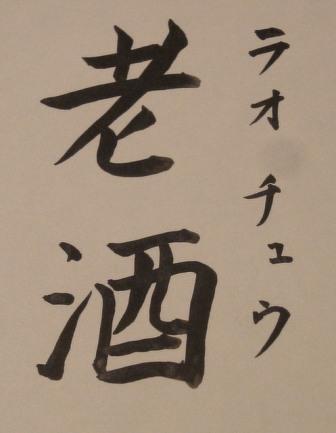 老酒
ラオチュウ